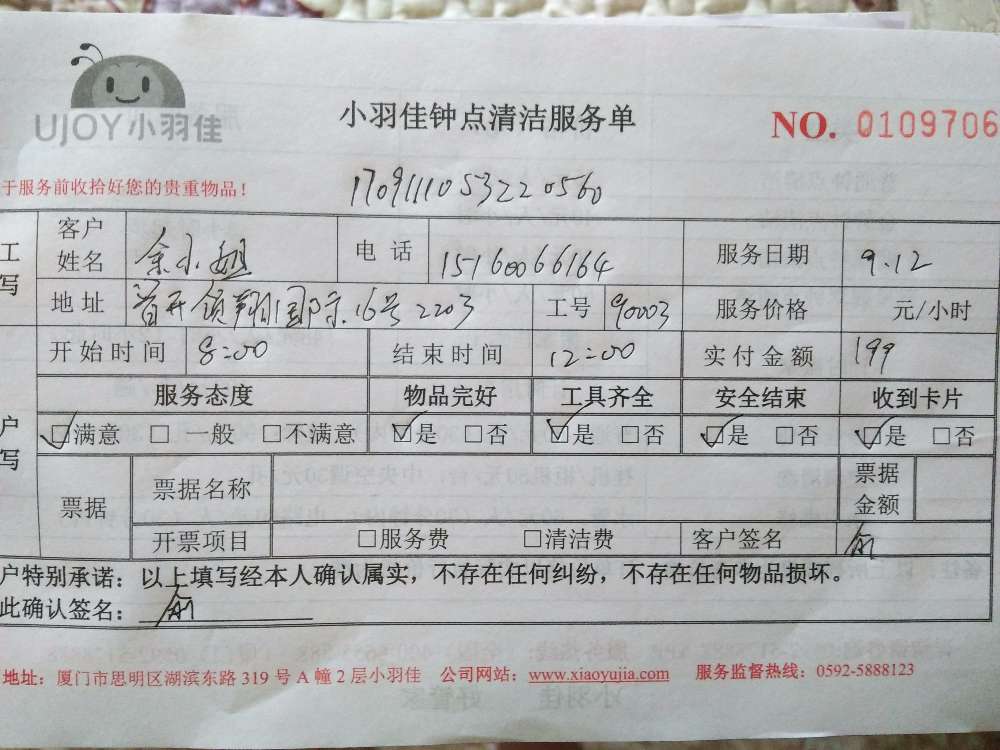 UJOY小羽佳
小羽佳钟点清洁服务单
NO. 0109706
于服务前收拾好您的贵重物品！
170911105322 0560
工 写
客户姓名 余小姐 电话 15160066164 服务日期 9.12
地址 首开领翔国际16号2203 工号 90003 服务价格 元/小时
开始时间 8:00 结束时间 12:00 实付金额 199
户 写
服务态度 物品完好 工具齐全 安全结束 收到卡片
☑满意 □一般 □不满意 ☑是 □否 ☑是 □否 ☑是 □否 ☑是 □否
票据 票据名称 票据金额
开票项目 □服务费 □清洁费 客户签名
户特别承诺：以上填写经本人确认属实，不存在任何纠纷，不存在任何物品损坏。
此确认签名：
地址：厦门市思明区湖滨东路 319 号 A 幢 2 层小羽佳 公司网站：www.xiaoyujia.com 服务监督热线：0592-5888123